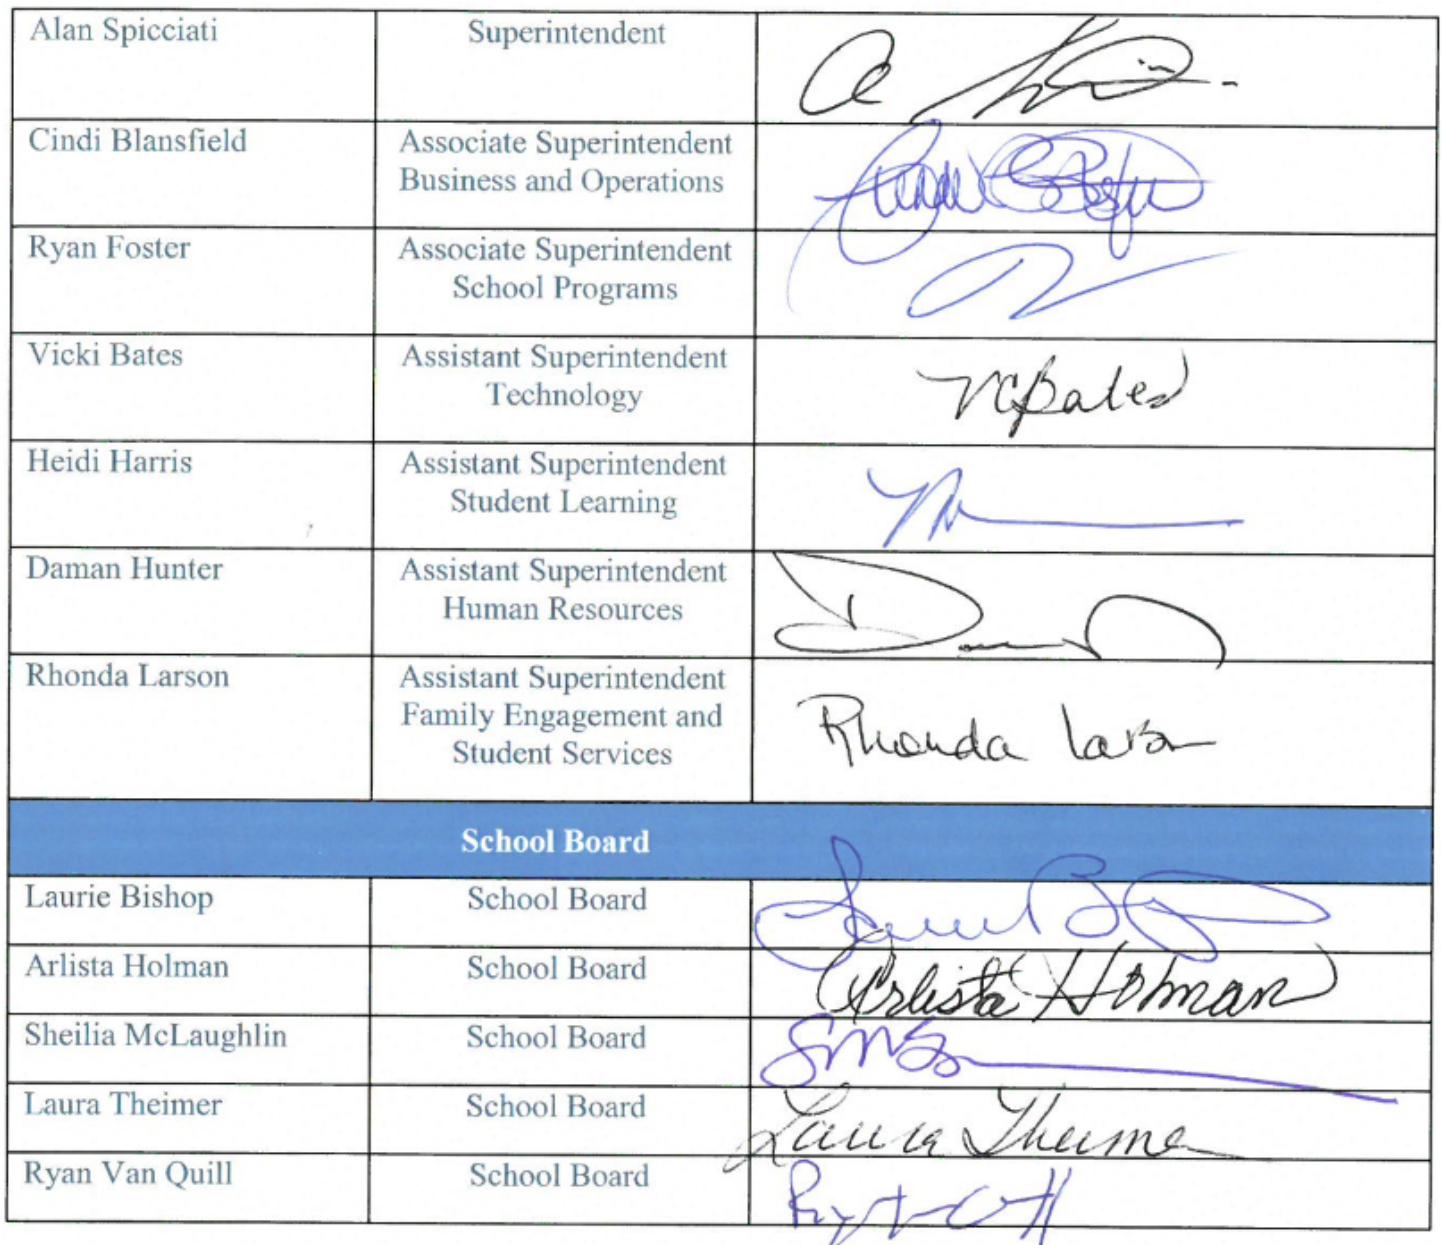 Alan Spicciati Superintendent
Cindi Blansfield Associate Superintendent
Business and Operations
Ryan Foster Associate Superintendent
School Programs
Vicki Bates Assistant Superintendent
Technology
VCBates
Heidi Harris Assistant Superintendent
Student Learning
Daman Hunter Assistant Superintendent
Human Resources
Rhonda Larson Assistant Superintendent
Family Engagement and
Student Services
Rhonda Larson
School Board
Laurie Bishop School Board
Arlista Holman School Board Arlista Holman
Sheilia McLaughlin School Board
Laura Theimer School Board Laura Theimer
Ryan Van Quill School Board